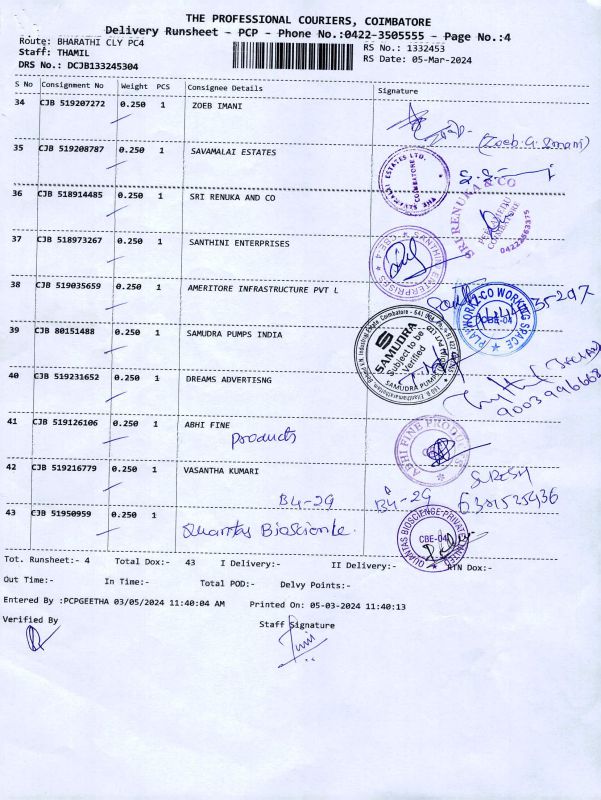 THE PROFESSIONAL COURIERS, COIMBATORE
Delivery Runsheet - PCP - Phone No.:0422-3505555 - Page No.:4
Route: BHARATHI CLY PC4
RS No.: 1332453
Staff: THAMIL
RS Date: 05-Mar-2024
DRS No.: DCJB133245304
S No Consignment No Weight PCS Consignee Details Signature
34 CJB 519207272 0.250 1 ZOEB IMANI
(Zoeb.G.Imani)
35 CJB 519208787 0.250 1 SAVAMALAI ESTATES
ESTATES LTD. COIMBATORE
36 CJB 518914485 0.250 1 SRI RENUKA AND CO
SRI RENUKA & CO
COIMBATORE
04222563375
37 CJB 518973267 0.250 1 SANTHINI ENTERPRISES
SANTHINI ENTERPRISES
38 CJB 519035659 0.250 1 AMERITORE INFRASTRUCTURE PVT L
PLAYWORKZ-CO WORKING SPACE
CBE-04
39 CJB 80151488 0.250 1 SAMUDRA PUMPS INDIA
SAMUDRA
Subject to be
Verified
SAMUDRA PUMPS
40 CJB 519231652 0.250 1 DREAMS ADVERTISNG
9003996668
41 CJB 519126106 0.250 1 ABHI FINE
products
ABHI FINE PRODUCTS
42 CJB 519216779 0.250 1 VASANTHA KUMARI
SURESH
B4-29 B4-29 6381525936
43 CJB 51950959 0.250 1
Quantas Bioscionte.
QUANTAS BIOSCIENCE PRIVATE LIMITED
CBE-04
Tot. Runsheet:- 4 Total Dox:- 43 I Delivery:- II Delivery:- RTN Dox:-
Out Time:- In Time:- Total POD:- Delvy Points:-
Entered By :PCPGEETHA 03/05/2024 11:40:04 AM Printed On: 05-03-2024 11:40:13
Verified By
Staff Signature